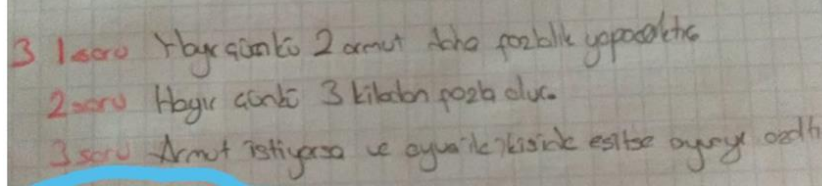 3 1 soru Hayır çünkü 2 armut daha fazlalık yapacaktır
2 soru Hayır çünkü 3 kilodan fazla olur.
3 soru Armut istiyorsa ve ikiside eşitse